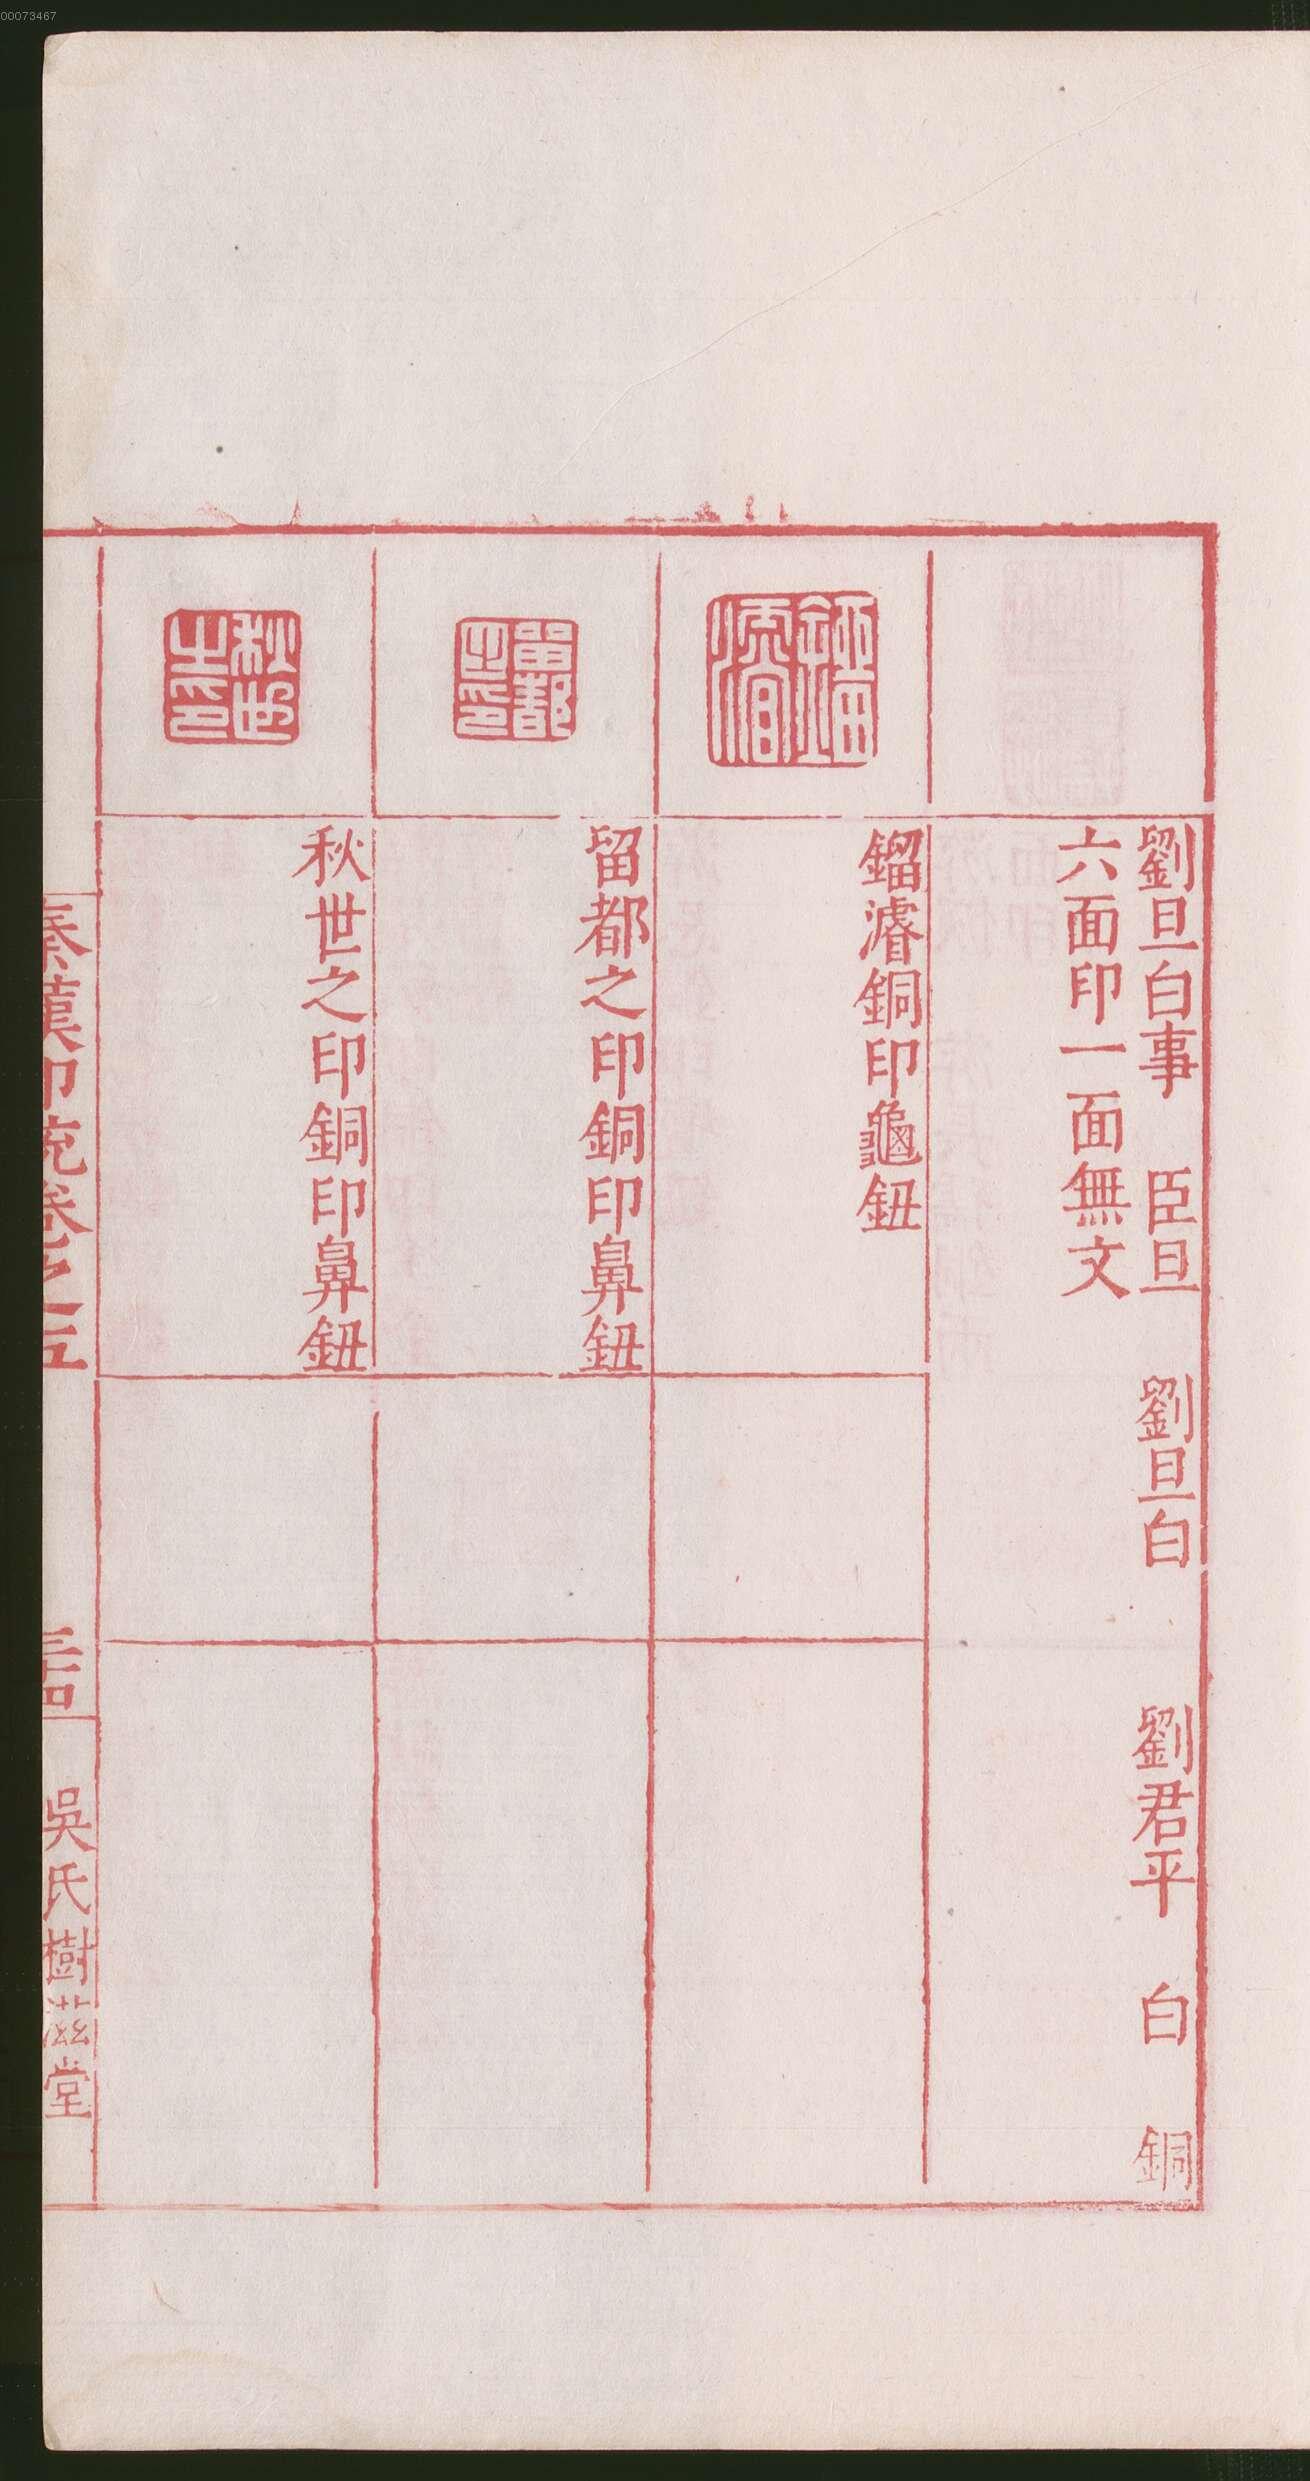 00073467
劉旦白事　臣旦　劉旦白　劉君平　白　銅
六面印一面無文
鎦濬銅印龜鈕
留都之印銅印鼻鈕
秋世之印銅印鼻鈕
秦漢印統卷之五
三十四
吳氏樹滋堂